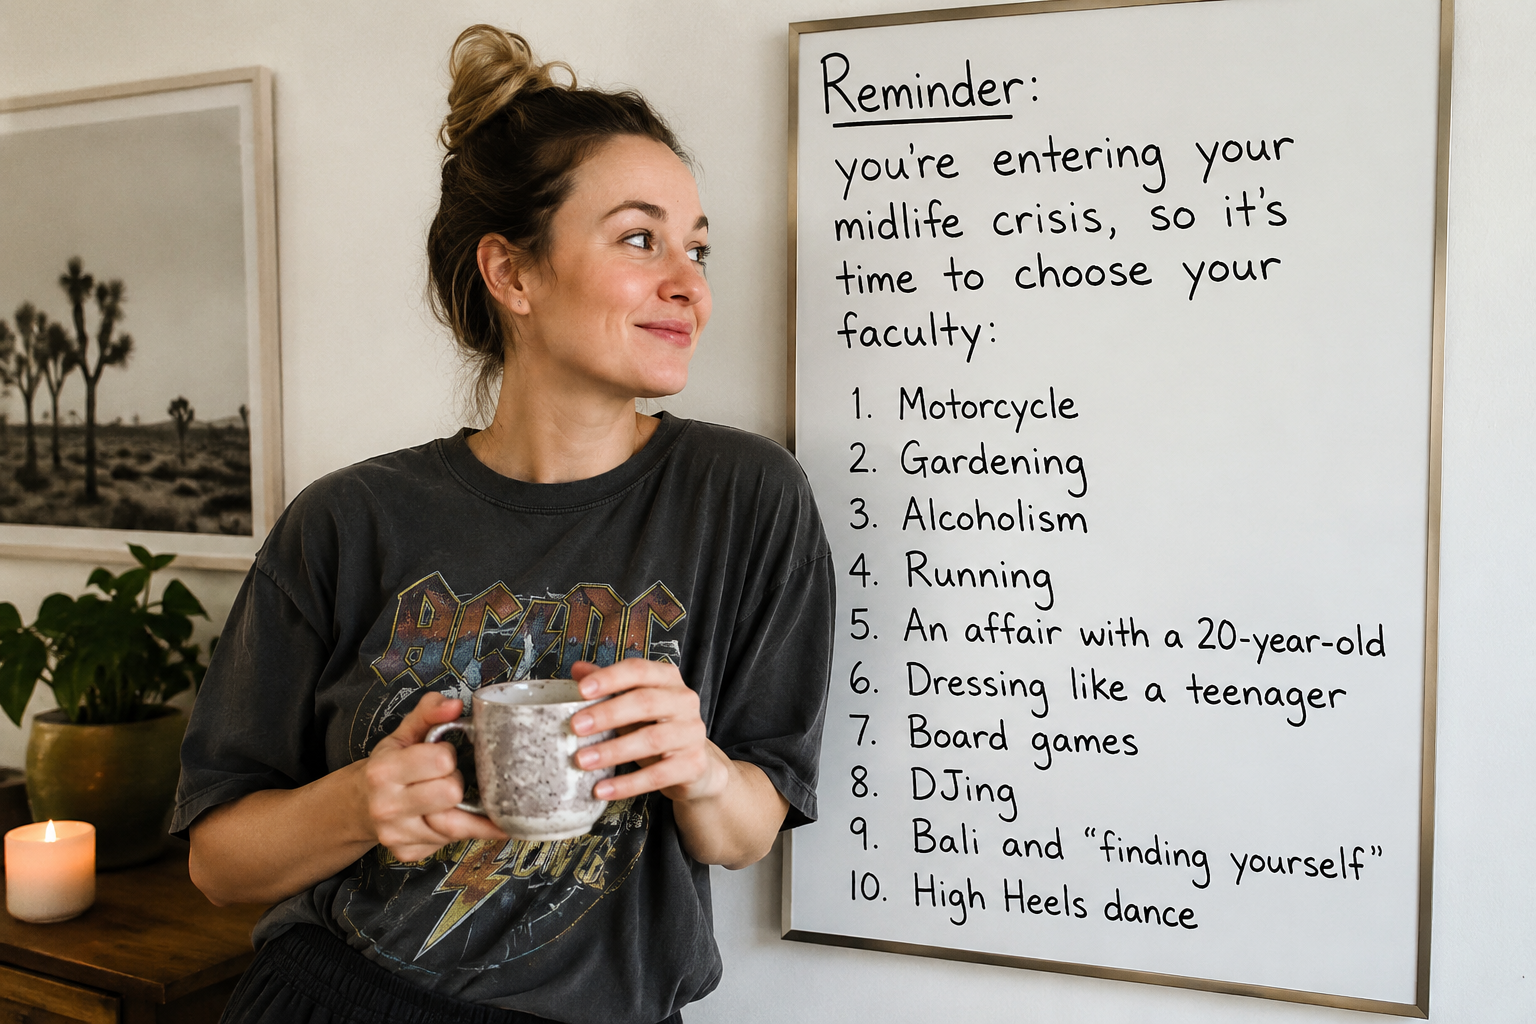 Reminder:
you're entering your
midlife crisis, so it's
time to choose your
faculty:
1. Motorcycle
2. Gardening
3. Alcoholism
4. Running
5. An affair with a 20-year-old
6. Dressing like a teenager
7. Board games
8. DJing
9. Bali and “finding yourself”
10. High Heels dance
AC/DC